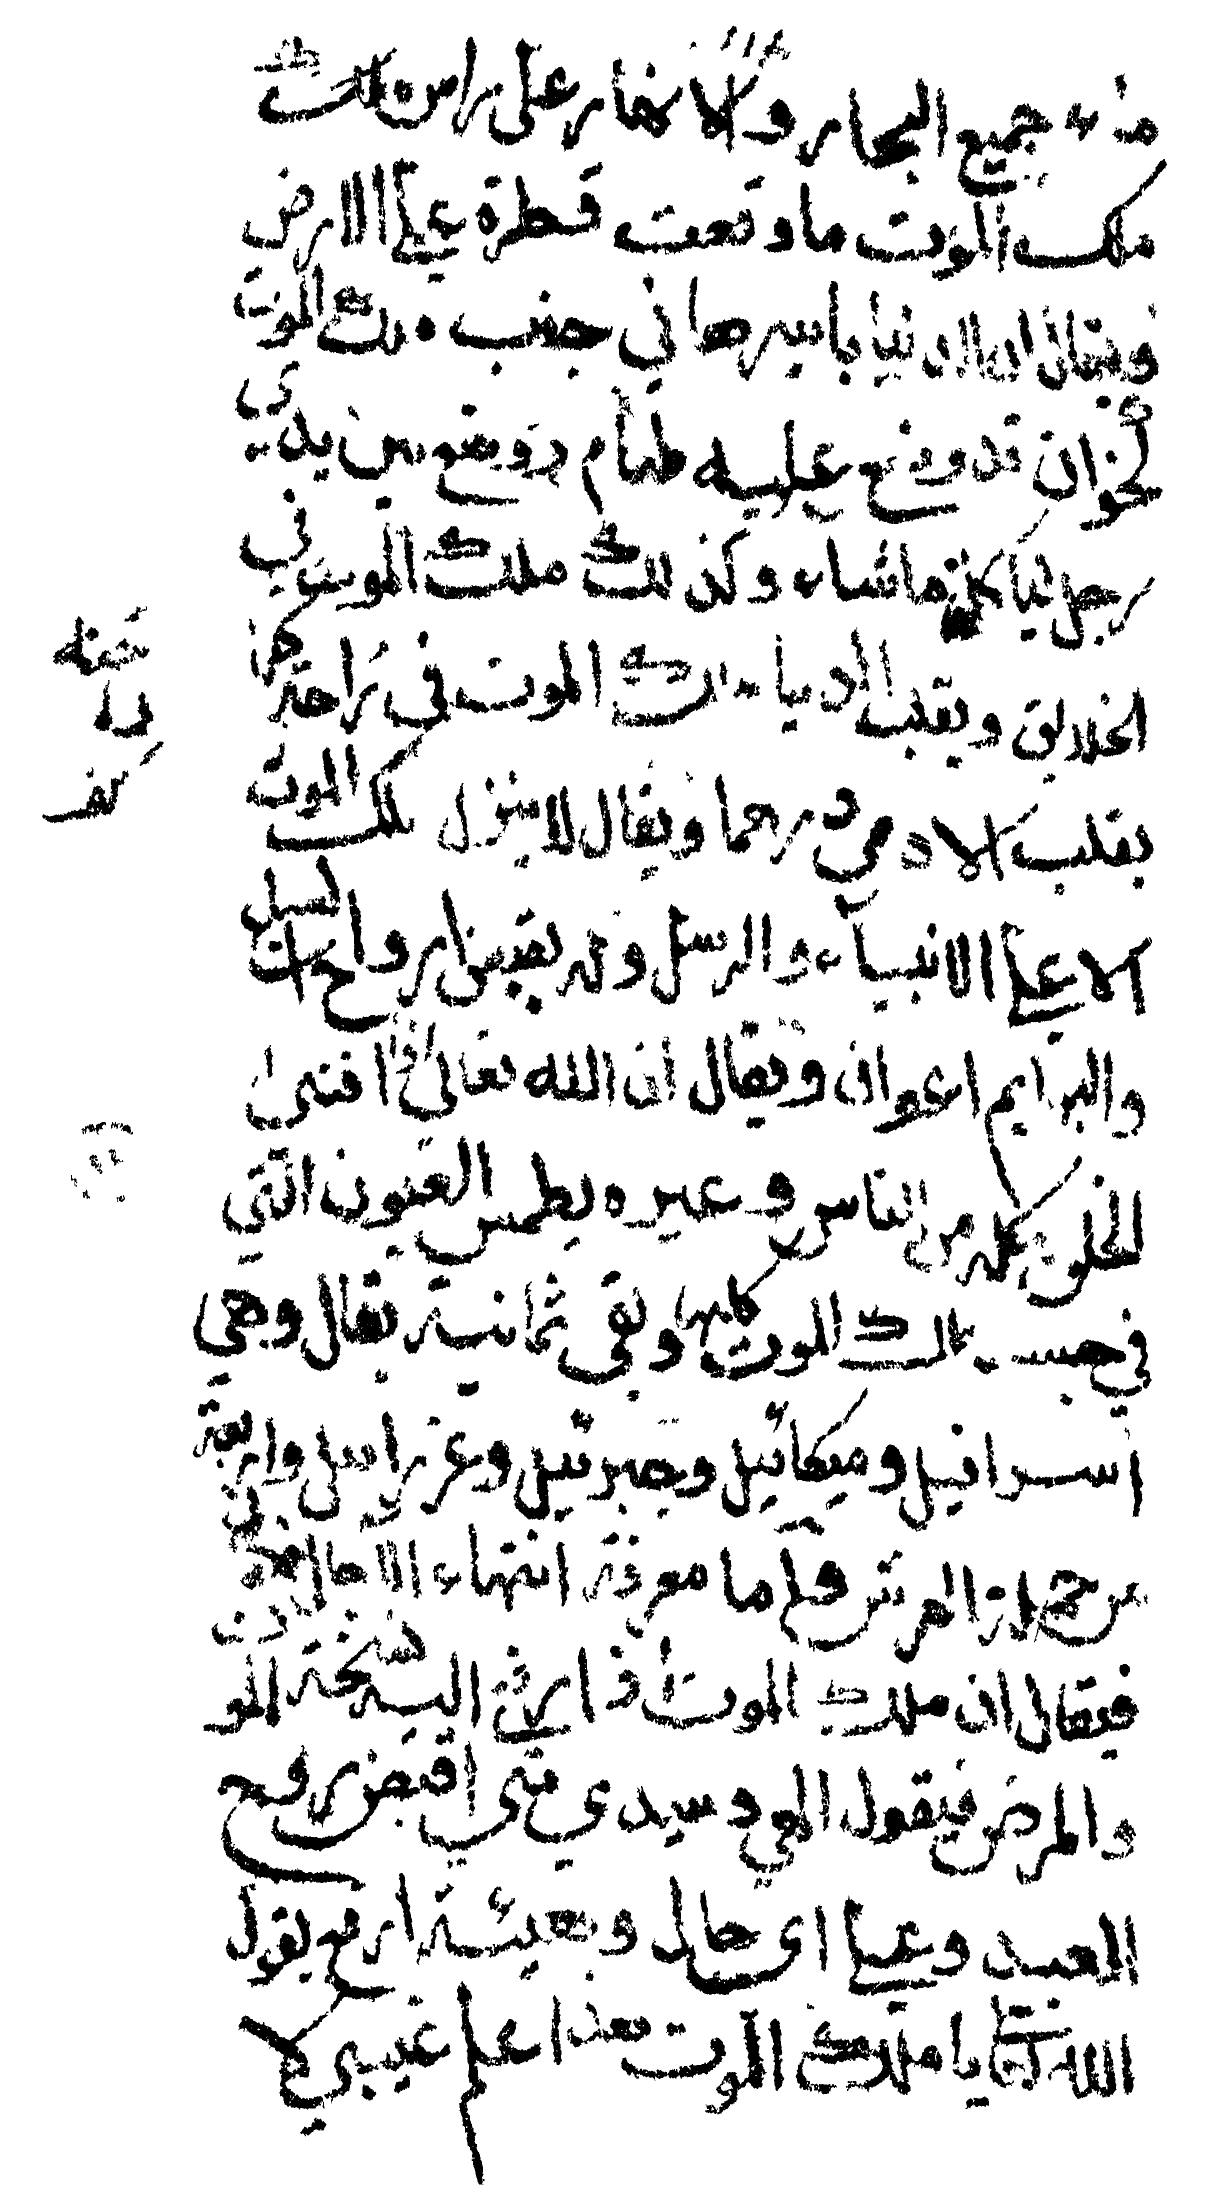 ماء جميع البحار والانهار على راس ملك
ملك الموت ما وقعت قطرة على الارض
ويقال ان الدنيا باسرها في جنب ملك الموت
كخوان قد وضع عليه طعام ووضع بين يدي
رجل لياكل ما شاء وكذلك ملك الموت في
الخلايق ويقلب الدنيا ملك الموت في راحته كما
يقلب الادمي درهما ويقال لا ينزل ملك الموت
الا على الانبياء والرسل وله يقبض ارواح السباع
والبهايم اعوان ويقال ان الله تعالى اذا افنى
الخلق كلهم من الناس وغيره يطمس العيون التي
في جسد ملك الموت كلها وبقي ثمانية يقال وهي
اسرافيل وميكائيل وجبرئيل وعزرائيل واربعة
من حملة العرش واما معرفة انتهاء الاجال
فيقال ان ملك الموت اذا رفع اليه نسخة الموت
والمرض فيقول الهي وسيدي متى اقبض روح
العبد وعلى اي حال وهيئة ارفع يقول
الله تعالى يا ملك الموت هذا علم غيبي لا